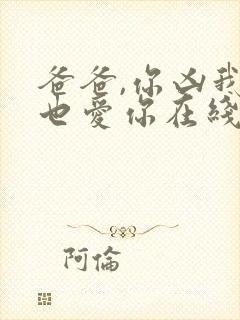 爸爸,你凶我
也爱你在綫
阿倫